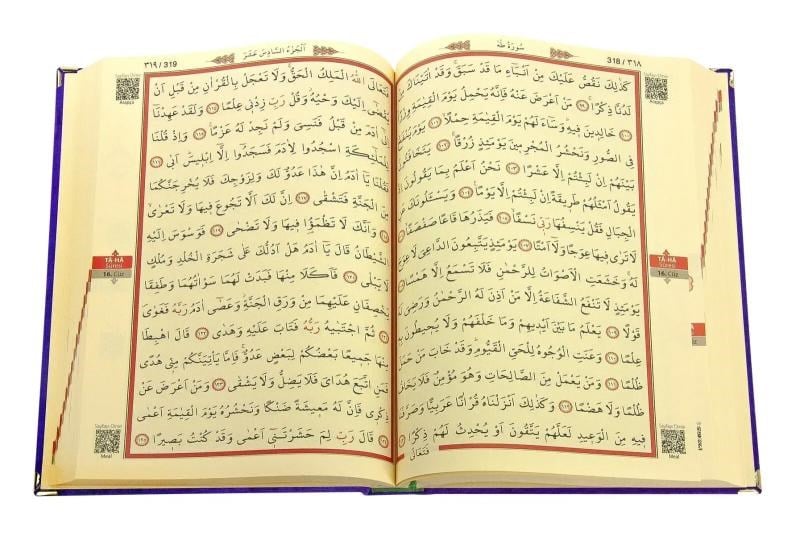 سُورَةُ طٰهٰ
318 / ٣١٨
كَذٰلِكَ نَقُصُّ عَلَيْكَ مِنْ اَنْبَٓاءِ مَا قَدْ سَبَقَۚ وَقَدْ اٰتَيْنَاكَ مِنْ
لَدُنَّا ذِكْرًاۚ ﴿٩٩﴾ مَنْ اَعْرَضَ عَنْهُ فَاِنَّهُ يَحْمِلُ يَوْمَ الْقِيٰمَةِ وِزْرًاۙ
﴿١٠٠﴾ خَالِدِينَ فِيهِۜ وَسَٓاءَ لَهُمْ يَوْمَ الْقِيٰمَةِ حِمْلًاۙ ﴿١٠١﴾ يَوْمَ يُنْفَخُ
فِي الصُّورِ وَنَحْشُرُ الْمُجْرِمِينَ يَوْمَئِذٍ زُرْقًاۚ ﴿١٠٢﴾ يَتَخَافَتُونَ
بَيْنَهُمْ اِنْ لَبِثْتُمْ اِلَّا عَشْرًا ﴿١٠٣﴾ نَحْنُ اَعْلَمُ بِمَا يَقُولُونَ اِذْ
يَقُولُ اَمْثَلُهُمْ طَرِيقَةً اِنْ لَبِثْتُمْ اِلَّا يَوْمًا۟ ﴿١٠٤﴾ وَيَسْـَٔلُونَكَ عَنِ
الْجِبَالِ فَقُلْ يَنْسِفُهَا رَبِّي نَسْفًاۙ ﴿١٠٥﴾ فَيَذَرُهَا قَاعًا صَفْصَفًاۙ ﴿١٠٦﴾
لَا تَرٰى فِيهَا عِوَجًا وَلَٓا اَمْتًاۜ ﴿١٠٧﴾ يَوْمَئِذٍ يَتَّبِعُونَ الدَّاعِيَ لَا عِوَجَ
لَهُۚ وَخَشَعَتِ الْاَصْوَاتُ لِلرَّحْمٰنِ فَلَا تَسْمَعُ اِلَّا هَمْسًا ﴿١٠٨﴾
يَوْمَئِذٍ لَا تَنْفَعُ الشَّفَاعَةُ اِلَّا مَنْ اَذِنَ لَهُ الرَّحْمٰنُ وَرَضِيَ لَهُ
قَوْلًا ﴿١٠٩﴾ يَعْلَمُ مَا بَيْنَ اَيْدِيهِمْ وَمَا خَلْفَهُمْ وَلَا يُحِيطُونَ بِهِ
عِلْمًا ﴿١١٠﴾ وَعَنَتِ الْوُجُوهُ لِلْحَيِّ الْقَيُّومِۜ وَقَدْ خَابَ مَنْ حَمَلَ
ظُلْمًا ﴿١١١﴾ وَمَنْ يَعْمَلْ مِنَ الصَّالِحَاتِ وَهُوَ مُؤْمِنٌ فَلَا يَخَافُ
ظُلْمًا وَلَا هَضْمًا ﴿١١٢﴾ وَكَذٰلِكَ اَنْزَلْنَاهُ قُرْاٰنًا عَرَبِيًّا وَصَرَّفْنَا
فِيهِ مِنَ الْوَعِيدِ لَعَلَّهُمْ يَتَّقُونَ اَوْ يُحْدِثُ لَهُمْ ذِكْرًا ﴿١١٣﴾
فَتَعَالَى
TÂ-HÂ
Sûresi
16. Cüz
Meal
اَلْجُزْءُ السَّادِسَ عَشَرَ
٣١٩ / 319
فَتَعَالَى اللّٰهُ الْمَلِكُ الْحَقُّۚ وَلَا تَعْجَلْ بِالْقُرْاٰنِ مِنْ قَبْلِ اَنْ
يُقْضٰٓى اِلَيْكَ وَحْيُهُۘ وَقُلْ رَبِّ زِدْنِي عِلْمًا ﴿١١٤﴾ وَلَقَدْ عَهِدْنَٓا
اِلٰٓى اٰدَمَ مِنْ قَبْلُ فَنَسِيَ وَلَمْ نَجِدْ لَهُ عَزْمًا۟ ﴿١١٥﴾ وَاِذْ قُلْنَا
لِلْمَلٰٓئِكَةِ اسْجُدُوا لِاٰدَمَ فَسَجَدُٓوا اِلَّٓا اِبْلِيسَۜ اَبٰى ﴿١١٦﴾
فَقُلْنَا يَٓا اٰدَمُ اِنَّ هٰذَا عَدُوٌّ لَكَ وَلِزَوْجِكَ فَلَا يُخْرِجَنَّكُمَا
مِنَ الْجَنَّةِ فَتَشْقٰى ﴿١١٧﴾ اِنَّ لَكَ اَلَّا تَجُوعَ فِيهَا وَلَا تَعْرٰىۙ
﴿١١٨﴾ وَاَنَّكَ لَا تَظْمَؤُ۬ا فِيهَا وَلَا تَضْحٰى ﴿١١٩﴾ فَوَسْوَسَ اِلَيْهِ
الشَّيْطَانُ قَالَ يَٓا اٰدَمُ هَلْ اَدُلُّكَ عَلٰى شَجَرَةِ الْخُلْدِ وَمُلْكٍ
لَا يَبْلٰى ﴿١٢٠﴾ فَاَكَلَا مِنْهَا فَبَدَتْ لَهُمَا سَوْاٰتُهُمَا وَطَفِقَا
يَخْصِفَانِ عَلَيْهِمَا مِنْ وَرَقِ الْجَنَّةِۘ وَعَصٰٓى اٰدَمُ رَبَّهُ فَغَوٰىۖ
﴿١٢١﴾ ثُمَّ اجْتَبٰيهُ رَبُّهُ فَتَابَ عَلَيْهِ وَهَدٰى ﴿١٢٢﴾ قَالَ اهْبِطَا
مِنْهَا جَمِيعًا بَعْضُكُمْ لِبَعْضٍ عَدُوٌّۚ فَاِمَّا يَأْتِيَنَّكُمْ مِنِّي هُدًى
فَمَنِ اتَّبَعَ هُدَايَ فَلَا يَضِلُّ وَلَا يَشْقٰى ﴿١٢٣﴾ وَمَنْ اَعْرَضَ عَنْ
ذِكْرِي فَاِنَّ لَهُ مَعِيشَةً ضَنْكًا وَنَحْشُرُهُ يَوْمَ الْقِيٰمَةِ اَعْمٰى
﴿١٢٤﴾ قَالَ رَبِّ لِمَ حَشَرْتَنِٓي اَعْمٰى وَقَدْ كُنْتُ بَصِيرًا ﴿١٢٥﴾
TÂ-HÂ
Sûresi
16. Cüz
Meal